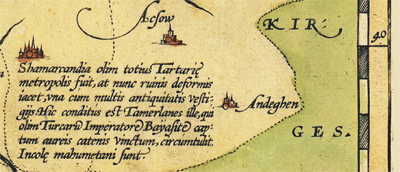 Acsow
KIR
40
Shamarcandia olim totius Tartarię
metropolis fuit, at nunc ruinis deformis
iacet, vna cum multis antiquitatis vesti=
gijs. Hic conditus est Tamerlanes ille, qui
olim Turcarū Imperatorē Bayasitē cap=
tum aureis catenis vinctum, circumtulit.
Incolę mahumetani sunt.
Andeghen
GES.